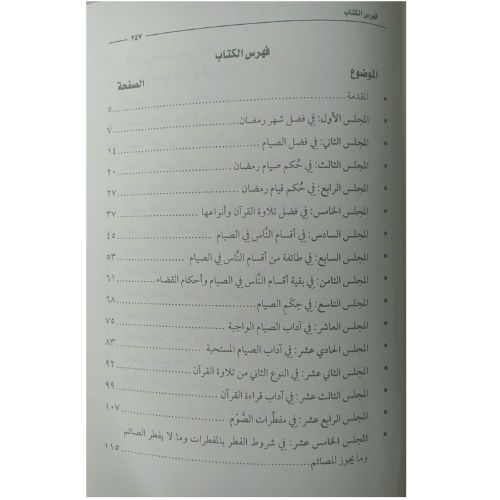 فهرس الكتاب
٢٤٧
فهرس الكتاب
الموضوع الصفحة
المقدمة ٥
المجلس الأول: في فضل شهر رمضان ٧
المجلس الثاني: في فضل الصيام ١٤
المجلس الثالث: في حُكم صيام رمضان ٢٠
المجلس الرابع: في حُكم قيام رمضان ٢٧
المجلس الخامس: في فضل تلاوة القرآن وأنواعها ٣٧
المجلس السادس: في أقسام النَّاس في الصيام ٤٥
المجلس السابع: في طائفة من أقسام النَّاس في الصيام ٥٣
المجلس الثامن: في بقية أقسام النَّاس في الصيام وأحكام القضاء ٦١
المجلس التاسع: في حِكَم الصيام ٦٨
المجلس العاشر: في آداب الصيام الواجبة ٧٥
المجلس الحادي عشر: في آداب الصيام المستحبة ٨٣
المجلس الثاني عشر: في النوع الثاني من تلاوة القرآن ٩٢
المجلس الثالث عشر: في آداب قراءة القرآن ٩٩
المجلس الرابع عشر: في مفطِّرات الصَّوْم ١٠٧
المجلس الخامس عشر: في شروط الفطر بالمفطرات وما لا يفطر الصائم
وما يجوز للصائم ١١٥